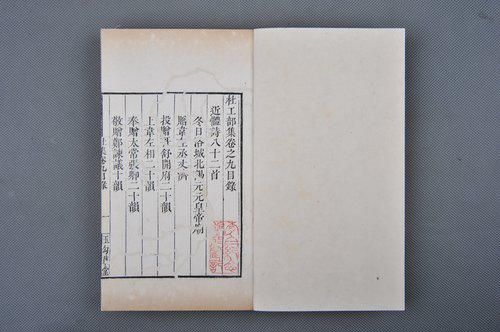 杜工部集卷之九目錄
近體詩八十二首
冬日洛城北謁元元皇帝廟
贈韋左丞丈濟
投贈哥舒開府二十韻
上韋左相二十韻
奉贈太常張卿二十韻
敬贈鄭諫議十韻